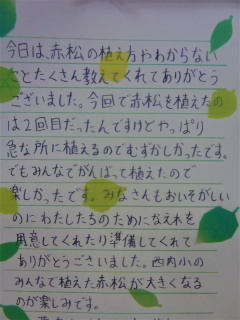 今日は、赤松の植え方やわからない
ことたくさん教えてくれてありがとう
ございました。今回で赤松を植えたの
は2回目だったんですけどやっぱり
急な所に植えるのでむずかしかったです。
でもみんなでがんばって植えたので
楽しかったです。みなさんもおいそがしい
のにわたしたちのためになえれを
用意してくれたり準備してくれて
ありがとうございました。西内小の
みんなで植えた赤松が大きくなる
のが楽しみです。